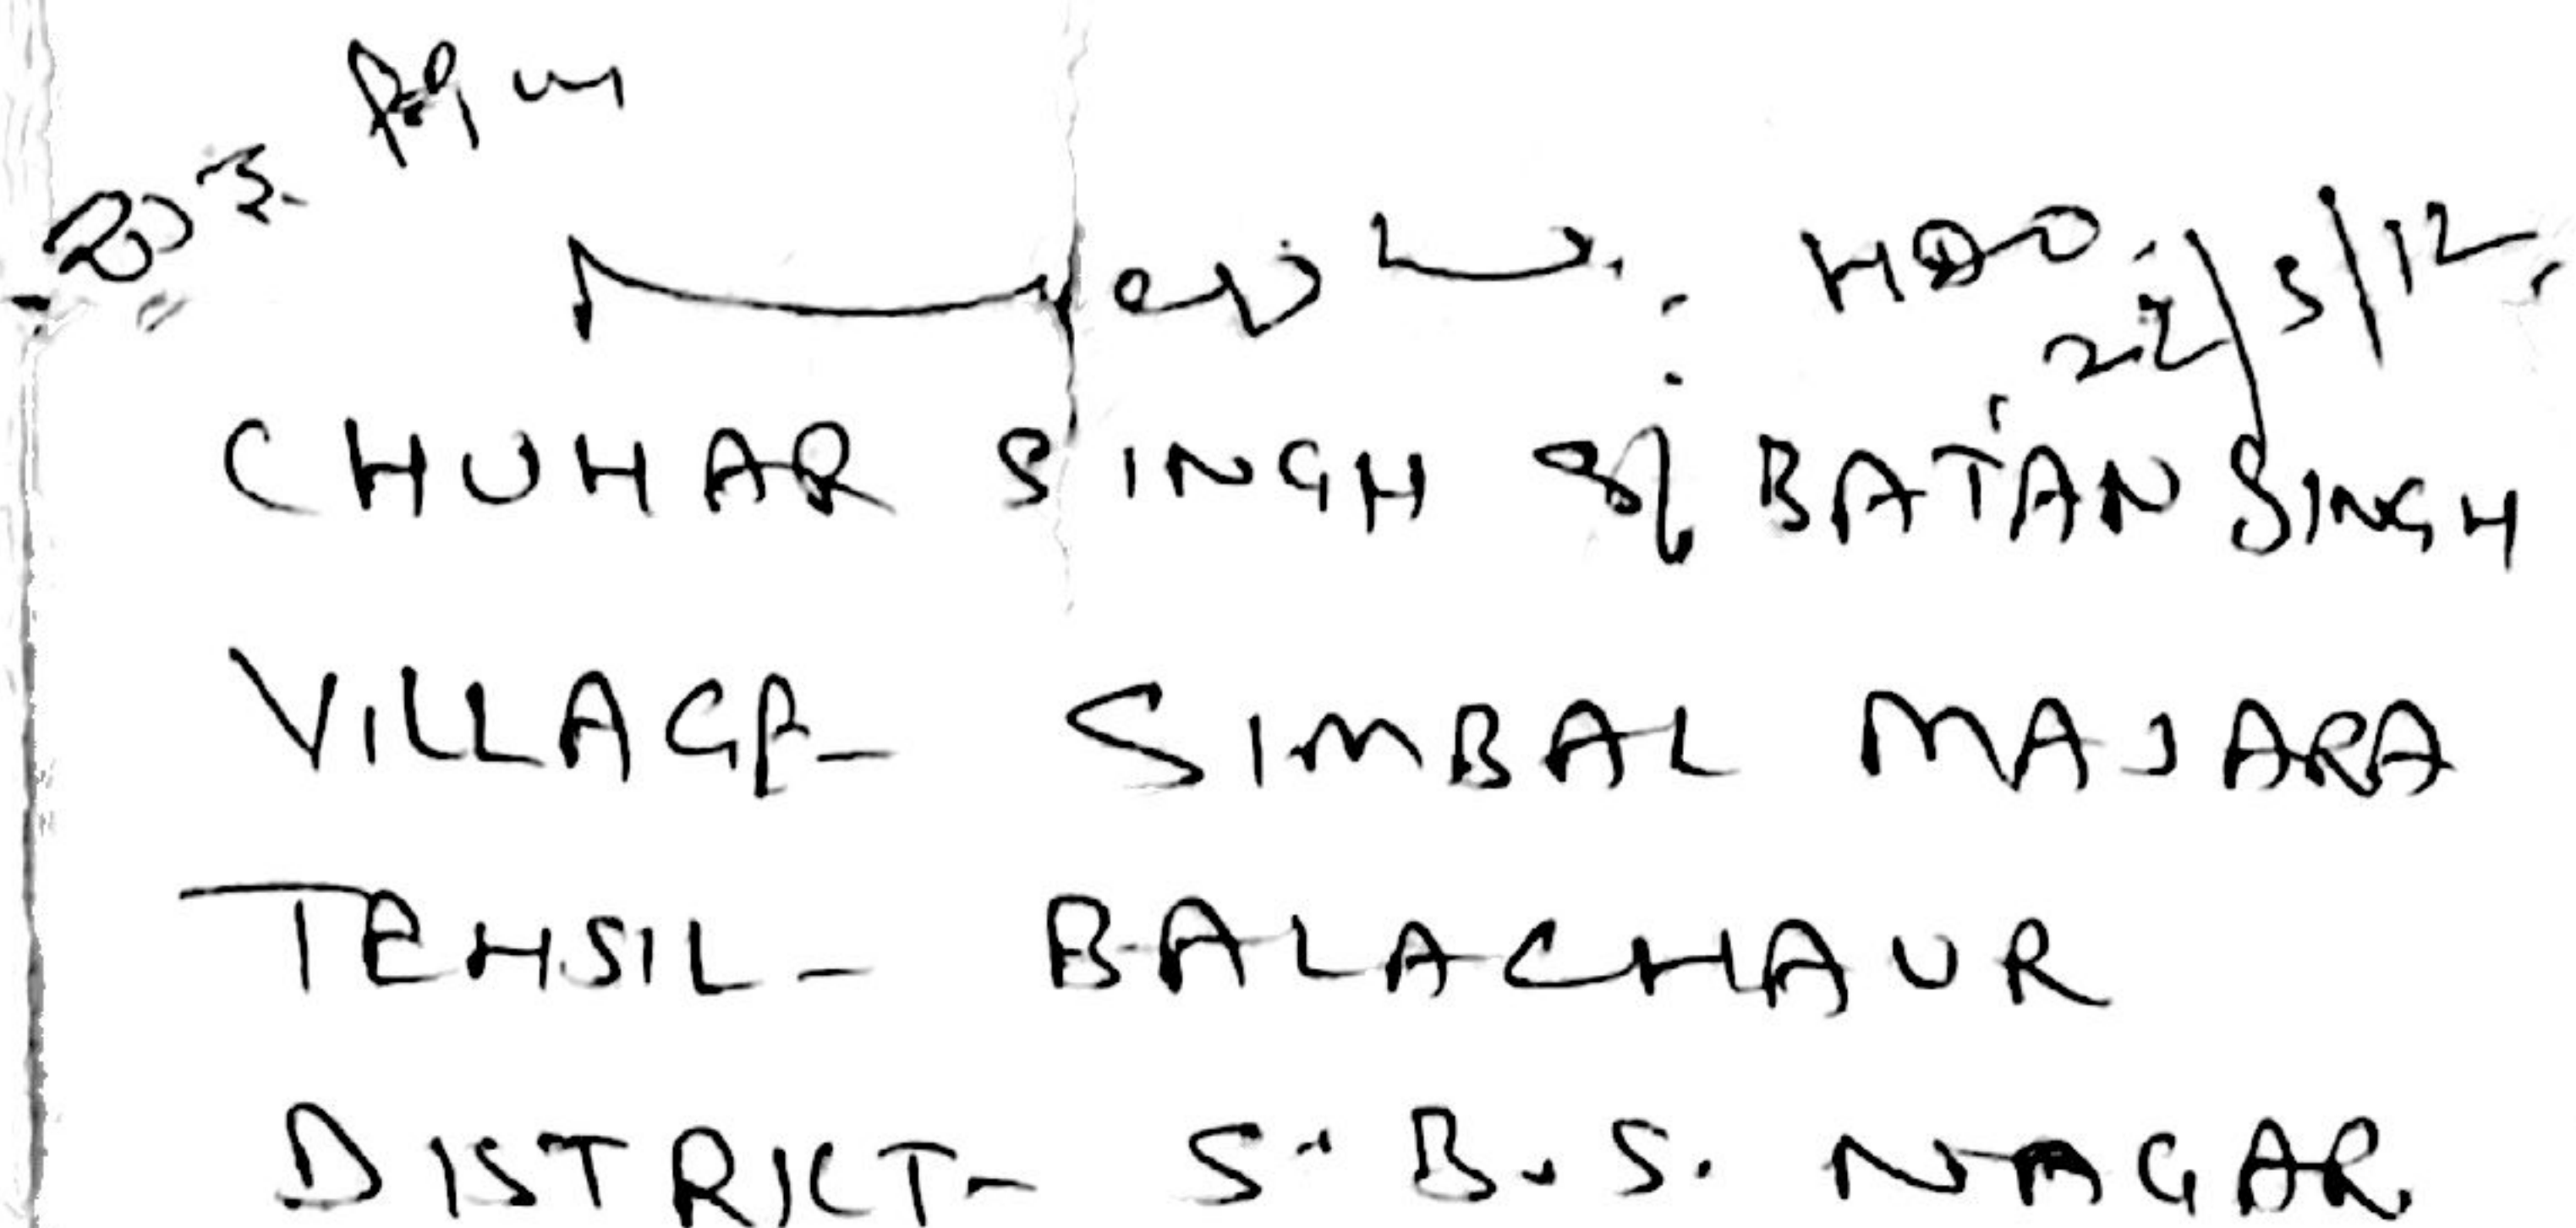 HDO.
22/5/12
CHUHAR SINGH S/o BATAN SINGH
VILLAGE- SIMBAL MAJARA
TEHSIL- BALACHAUR
DISTRICT- S.B.S. NAGAR